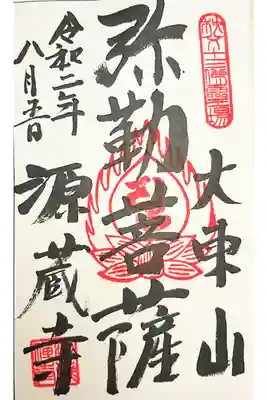 大東山
弥勒菩薩
源蔵寺
令和二年
八月日